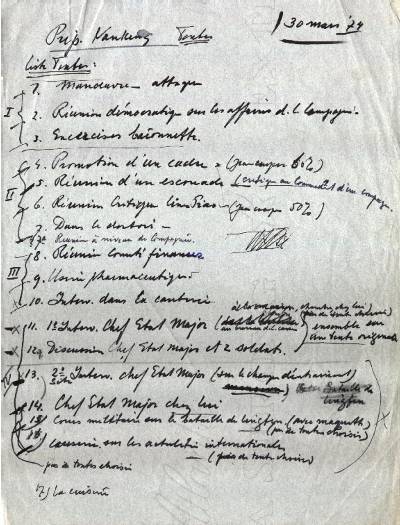 30 mars 74
Prép. Nankeng Textes
Liste Textes :
I
1. Manoeuvre - attaque
2. Réunion démocratique sur les affaires d. l. Compagnie.
3. Exercices baïonnette.
II
4. Promotion d'un cadre = (jeu coupes 60%)
5. Réunion d'un escouade (critique au d'un compagnie
6. Réunion Critique Lin Piao - (jeu coupe 50%)
7. Dans le dortoir -
7a Réunion à niveau de Compagnie.
III
8. Réunion Comité finances
9. Usine pharmaceutique
10. Interv. dans la
11. 1° Interv. Chef Etat Major ( chez lui) (pas de texte choisi) ensemble sur une texte original
12a Discussion Chef Etat Major et 2 soldats.
V
13. 2° Interv. Chef Etat Major (sur le changement ) Bataille de
14. Chef Etat Major chez lui
15/ Cours militaire sur la bataille de (avec maquette) (pas de textes choisi)
16/ Causerie sur les actualités internationales
pas de textes choisi (pas de texte choisi)
17) La cuisine